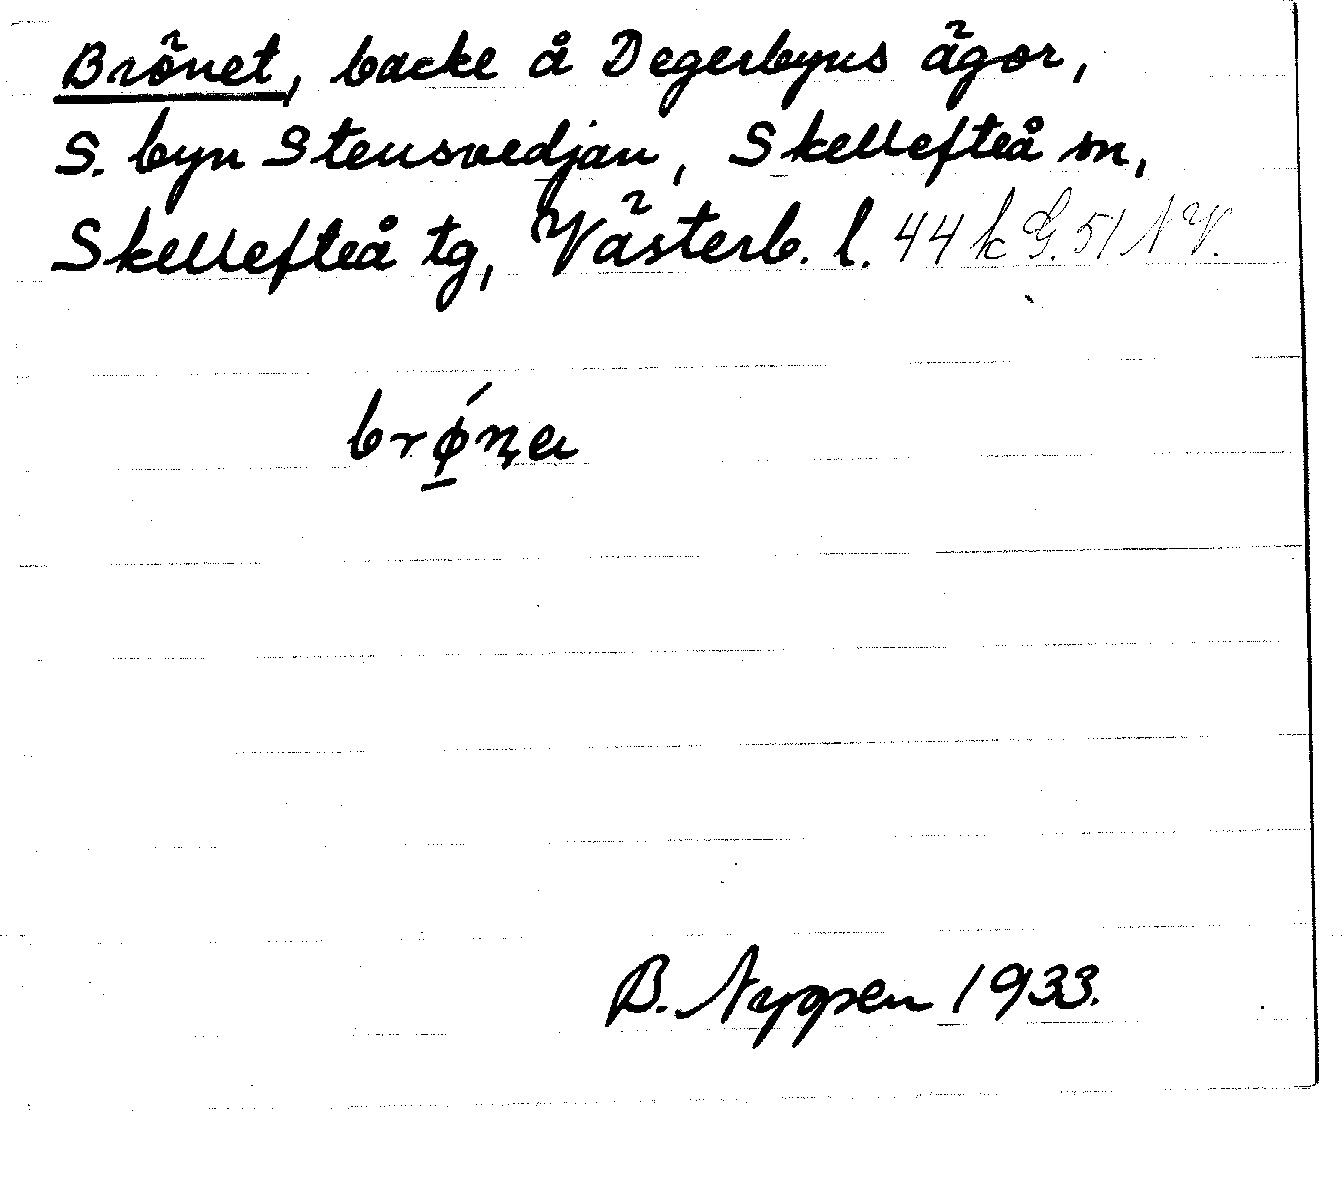 Brönet, backe å Degerbyns ägor,
S. byn Stensvedjan, Skellefteå sn,
Skellefteå tg, Västerb. l. 44 k G. 51 NV.
brǿ̱ṇa
B. Nygren 1933.